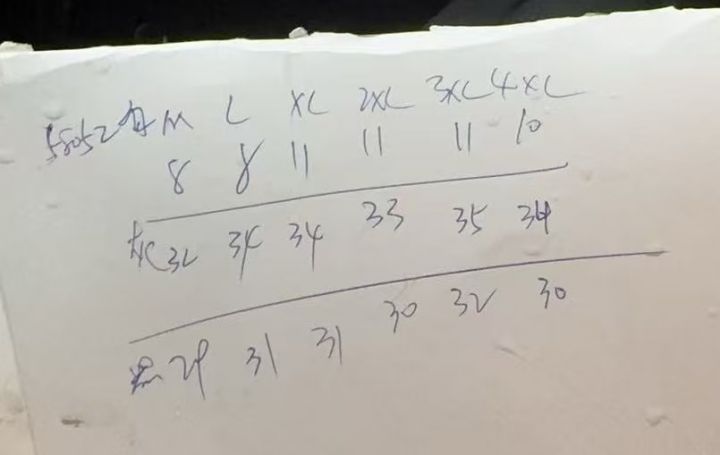 58052 M L XL 2XL 3XL 4XL
8 8 11 11 11 10
32 34 34 33 35 34
29 31 31 30 32 30